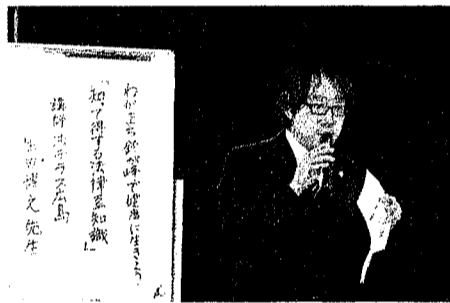 わがまち鈴が峰で健康に生きよう・
「知って得する法律豆知識」
講師 法テラス広島
先生